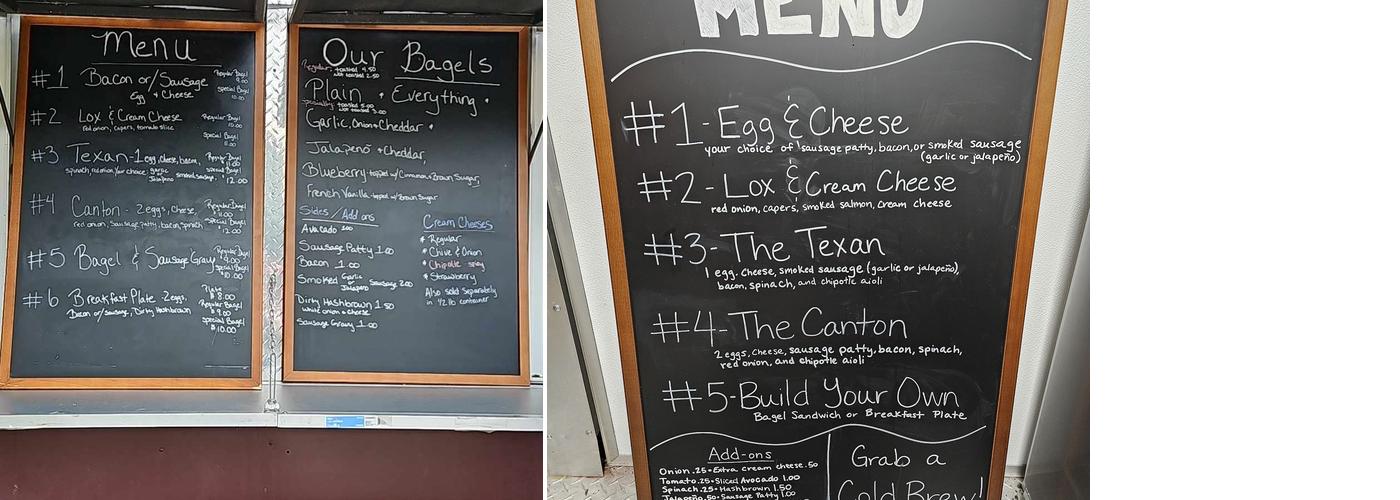 Menu
#1 Bacon or/Sausage Regular Bagel
9.00
Egg + Cheese Special Bagel
10.00
#2 Lox & Cream Cheese Regular Bagel
10.00
red onion, capers, tomato slice
Special Bagel
11.00
#3 Texan - 1 egg, cheese, bacon, Regular Bagel
11.00
spinach, red onion, Your choice: garlic Special Bagel
Jalapeno smoked sausage. $12.00
#4 Canton - 2 eggs, Cheese, Regular Bagel
$11.00
red onion, Sausage patty, bacon, spinach Special Bagel
$12.00
#5 Bagel & Sausage Gravy Regular Bagel
$9.00
Special Bagel
$10.00
#6 Breakfast Plate - 2 eggs, Plate
$8.00
Bacon or/sausage, Dirty Hashbrown Regular Bagel
$9.00
Special Bagel
$10.00
Our Bagels
Regular: toasted
not toasted 2.50
Plain • Everything •
Specialty: toasted 5.00
not toasted 3.00
Garlic, Onion + Cheddar •
Jalapeño + Cheddar,
Blueberry - topped w/ Cinnamon + Brown Sugar,
French Vanilla - topped w/ Brown Sugar
Sides / Add ons
Avacado 1.00
Sausage Patty 1.00
Bacon 1.00
Smoked Garlic Jalapeno Sausage 2.00
Dirty Hashbrown 1.50
white onion + cheese
Sausage Gravy 1.00
Cream Cheeses
* Regular
* Chive & Onion
* Chipotle spicy
* Strawberry
Also sold separately
in 1/2 lb container
MENU
#1 - Egg & Cheese
your choice of sausage patty, bacon, or smoked sausage
(garlic or jalapeño)
#2 - Lox & Cream Cheese
red onion, capers, smoked salmon, cream cheese
#3 - The Texan
1 egg, cheese, smoked sausage (garlic or jalapeño),
bacon, spinach, and chipotle aioli
#4 - The Canton
2 eggs, cheese, sausage patty, bacon, spinach,
red onion, and chipotle aioli
#5 - Build Your Own
Bagel Sandwich or Breakfast Plate
Add-ons
Onion .25 • Extra cream cheese .50
Tomato .25 • Sliced Avocado 1.00
Spinach .25 • Hashbrown 1.50
Jalapeño .50 • Sausage Patty 1.00
Grab a
Cold Brew!